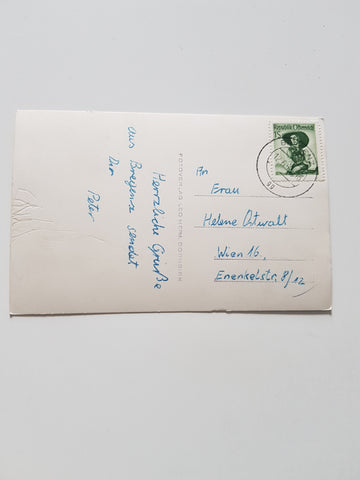 Herzliche Grüße
aus Bregenz sendet
Dir
Peter
An
Frau
Helene Ostwalt
Wien 16,
Enenkelstr. 8/12
Republik Österreich